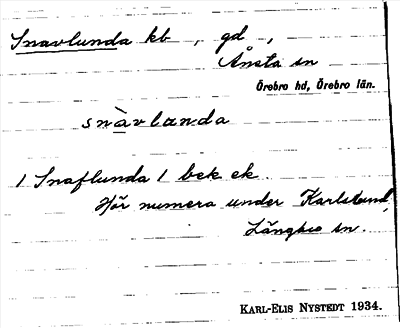 Snavlunda kb , gd ,
Ånsta sn
Örebro hd, Örebro län.
snàvlanda
1 Snaflunda 1 bek ek.
Hör numera under Karlslund,
Längbro sn.
KARL-ELIS NYSTEDT 1934.